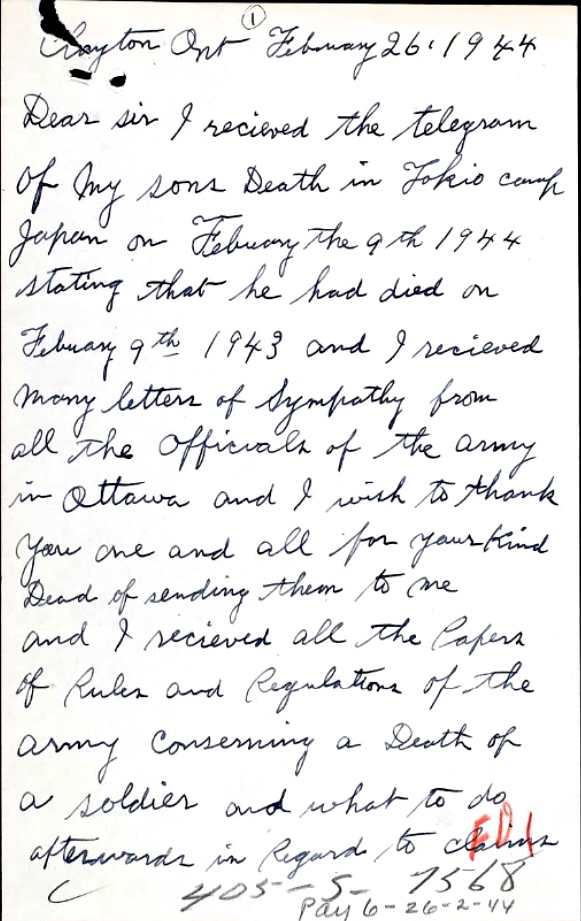 1
Clayton Ont February 26. 1944
Dear sir I recieved the telegram
Of My sons Death in Tokio camp
Japan on Febuary the 9th 1944
stating that he had died on
Febuary 9th 1943 and I recieved
Many letters of Sympathy from
all the Officials of the army
in Ottawa and I wish to thank
You one and all for your Kind
Dead of sending them to me
and I recieved all the Papers
of Rules and Regulations of the
army Conserning a Death of
a soldier and what to do
afterwards in Regard to claims
ED1
405-S-7568
Pay 6-26-2-44